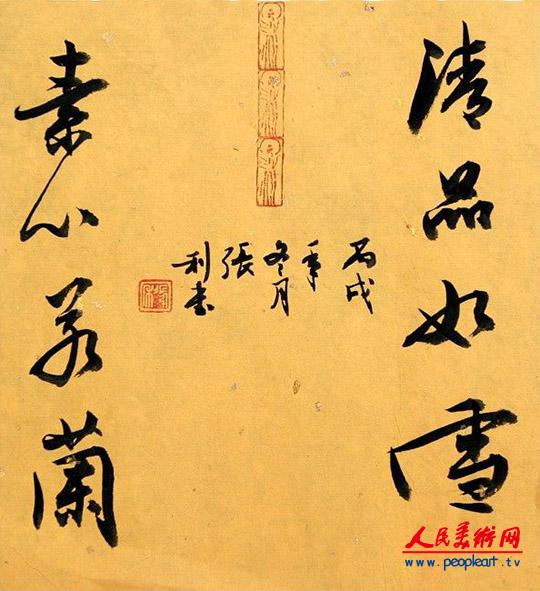 清品如雪
素心若蘭
丙戌
年
冬月
張
利書
人民美術网
www.peopleart.tv